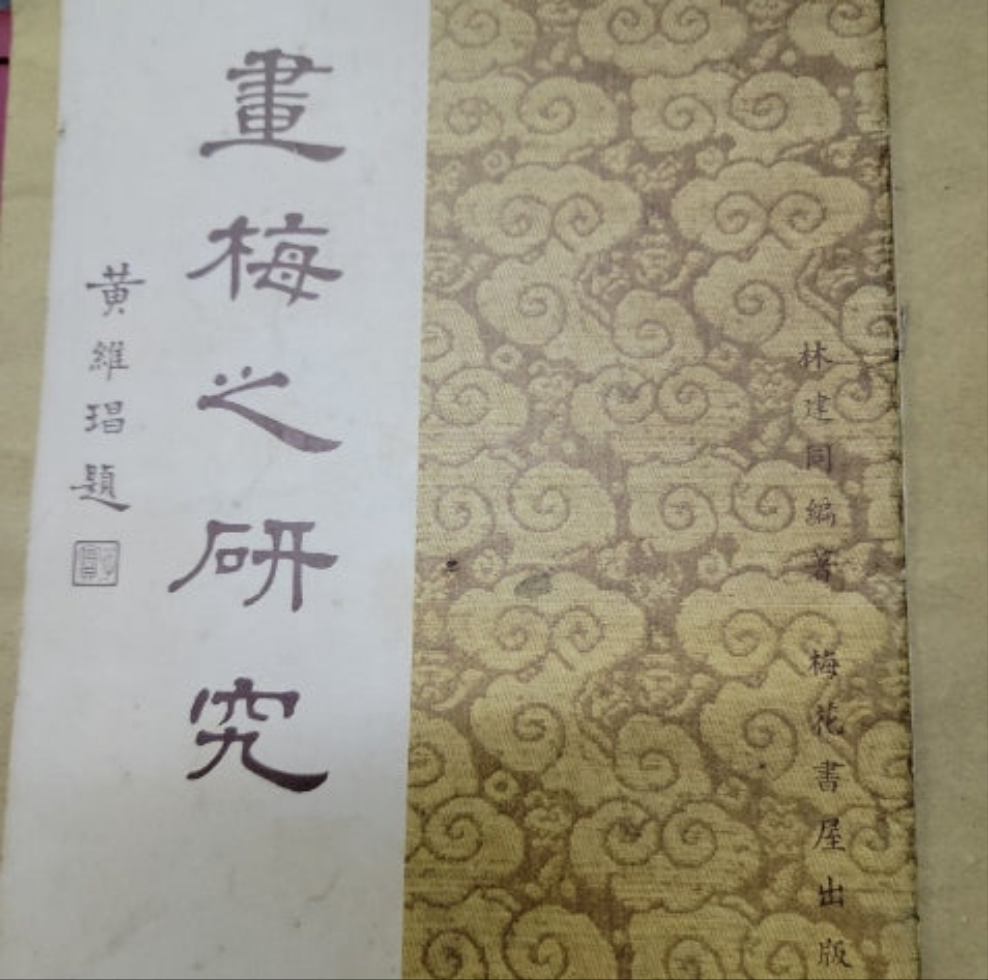 林建同編著 梅花書屋出版
畫梅之研究
黃維琩題